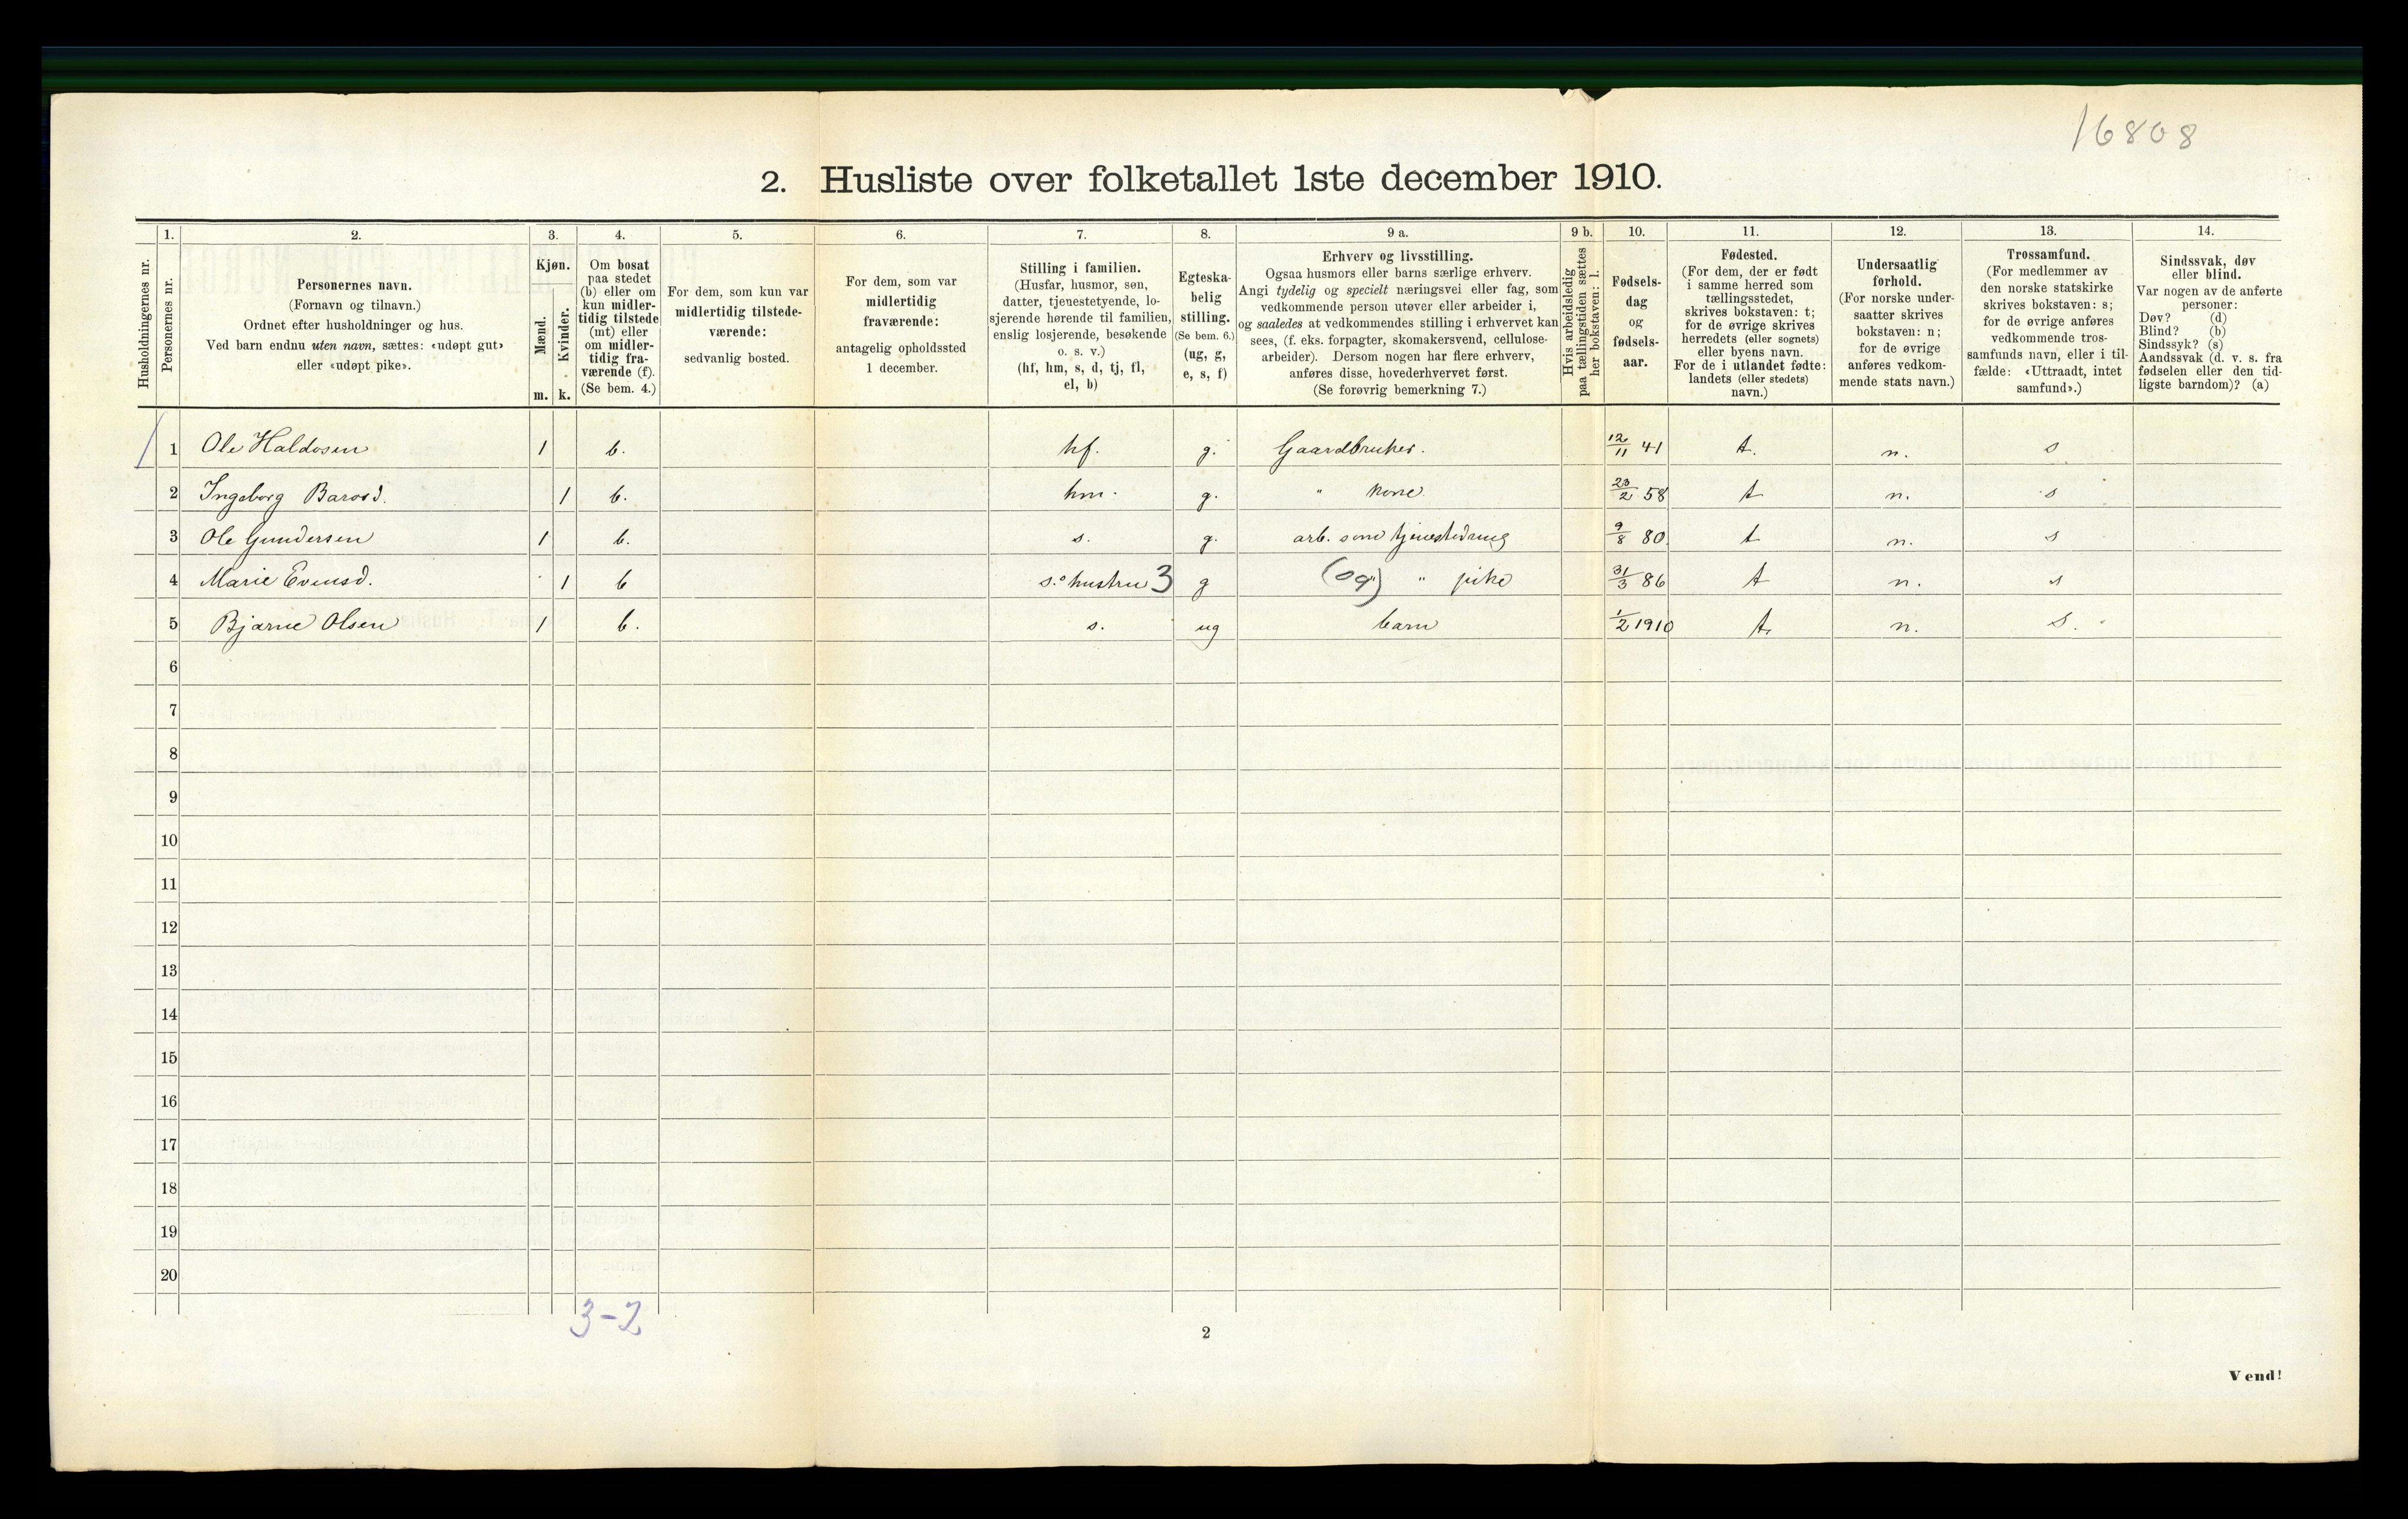 16808
2. Husliste over folketallet 1ste december 1910.
Husholdningernes nr.
1.
Personernes nr.
2.
Personernes navn.
(Fornavn og tilnavn.)
Ordnet efter husholdninger og hus.
Ved barn endnu uten navn, sættes: «udøpt gut»
eller «udøpt pike».
3.
Kjøn.
Mænd.
Kvinder.
m. k.
4.
Om bosat
paa stedet
(b) eller om
kun midler-
tidig tilstede
(mt) eller
om midler-
tidig fra-
værende (f).
(Se bem. 4.)
5.
For dem, som kun var
midlertidig tilstede-
værende:
sedvanlig bosted.
6.
For dem, som var
midlertidig
fraværende:
antagelig opholdssted
1 december.
7.
Stilling i familien.
(Husfar, husmor, søn,
datter, tjenestetyende, lo-
sjerende hørende til familien,
enslig losjerende, besøkende
o. s. v.)
(hf, hm, s, d, tj, fl,
el, b)
8.
Egteska-
belig
stilling.
(Se bem. 6.)
(ug, g,
e, s, f)
9 a.
Erhverv og livsstilling.
Ogsaa husmors eller barns særlige erhverv.
Angi tydelig og specielt næringsvei eller fag, som
vedkommende person utøver eller arbeider i,
og saaledes at vedkommendes stilling i erhvervet kan
sees, (f. eks. forpagter, skomakersvend, cellulose-
arbeider). Dersom nogen har flere erhverv,
anføres disse, hovederhvervet først.
(Se forøvrig bemerkning 7.)
9 b.
Hvis arbeidsledig
paa tællingstiden sættes
her bokstaven: l.
10.
Fødsels-
dag
og
fødsels-
aar.
11.
Fødested.
(For dem, der er født
i samme herred som
tællingsstedet,
skrives bokstaven: t;
for de øvrige skrives
herredets (eller sognets)
eller byens navn.
For de i utlandet fødte:
landets (eller stedets)
navn.)
12.
Undersaatlig
forhold.
(For norske under-
saatter skrives
bokstaven: n;
for de øvrige
anføres vedkom-
mende stats navn.)
13.
Trossamfund.
(For medlemmer av
den norske statskirke
skrives bokstaven: s;
for de øvrige anføres
vedkommende tros-
samfunds navn, eller i til-
fælde: «Uttraadt, intet
samfund».)
14.
Sindssvak, døv
eller blind.
Var nogen av de anførte
personer:
Døv? (d)
Blind? (b)
Sindssyk? (s)
Aandssvak (d. v. s. fra
fødselen eller den tid-
ligste barndom)? (a)
1 Ole Haldosen 1 b. hf. g. Gaardbruker. 12/11 41 t. n. s
2 Ingeborg 1 b. hm. g. " kone 23/2 58 t n. s
3 Ole Gundersen 1 b. s. g. arb. som 9/8 80 t n. s
4 Marie Evensd. 1 b s.s hustru 3 g (og) " pike 31/3 86 t n. s
5 Bjarne Olsen 1 b. s. ug barn 1/2 1910 t. n. s.
6
7
8
9
10
11
12
13
14
15
16
17
18
19
20
3-2
2
Vend!